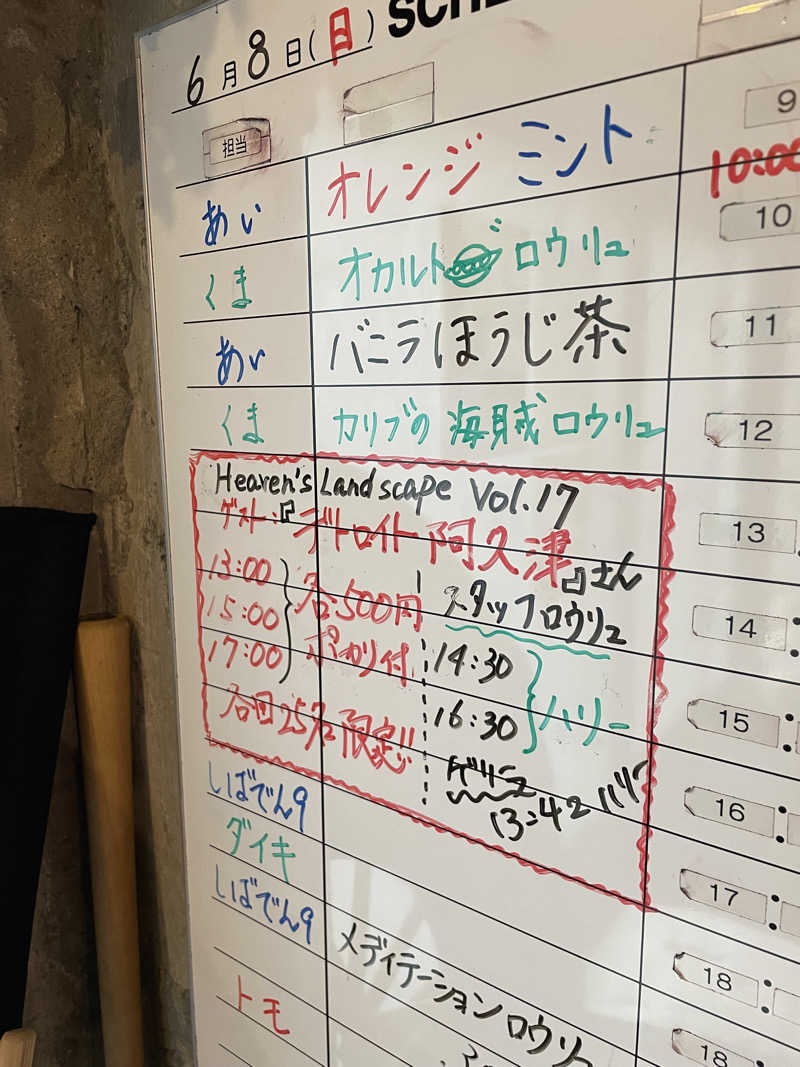 6月8日(日) SCHE
担当
9
あい オレンジ ミント 10:00
10
くま オカルト ロウリュ
11
あい バニラほうじ茶
12
くま カリブの海賊ロウリュ
Heaven's Landscape Vol.17
13
ゲスト:『デトロイト阿久津』さん
13:00
15:00
17:00
各500円
ポカリ付
スタッフロウリュ
14
14:30
16:30
ハリー
15
各回25名限定!!
13:42
16
しばでん9
17
ダイキ
しばでん9 メディテーションロウリ
18
トモ
18